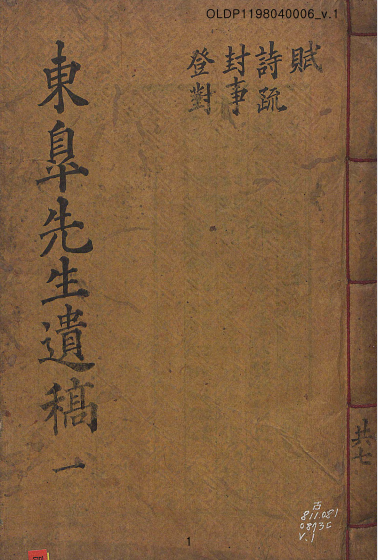 OLDP1198040006_v.1
賦
詩疏
封事
登對
東皐先生遺稿 一
共七
古
811.081
V.1
1